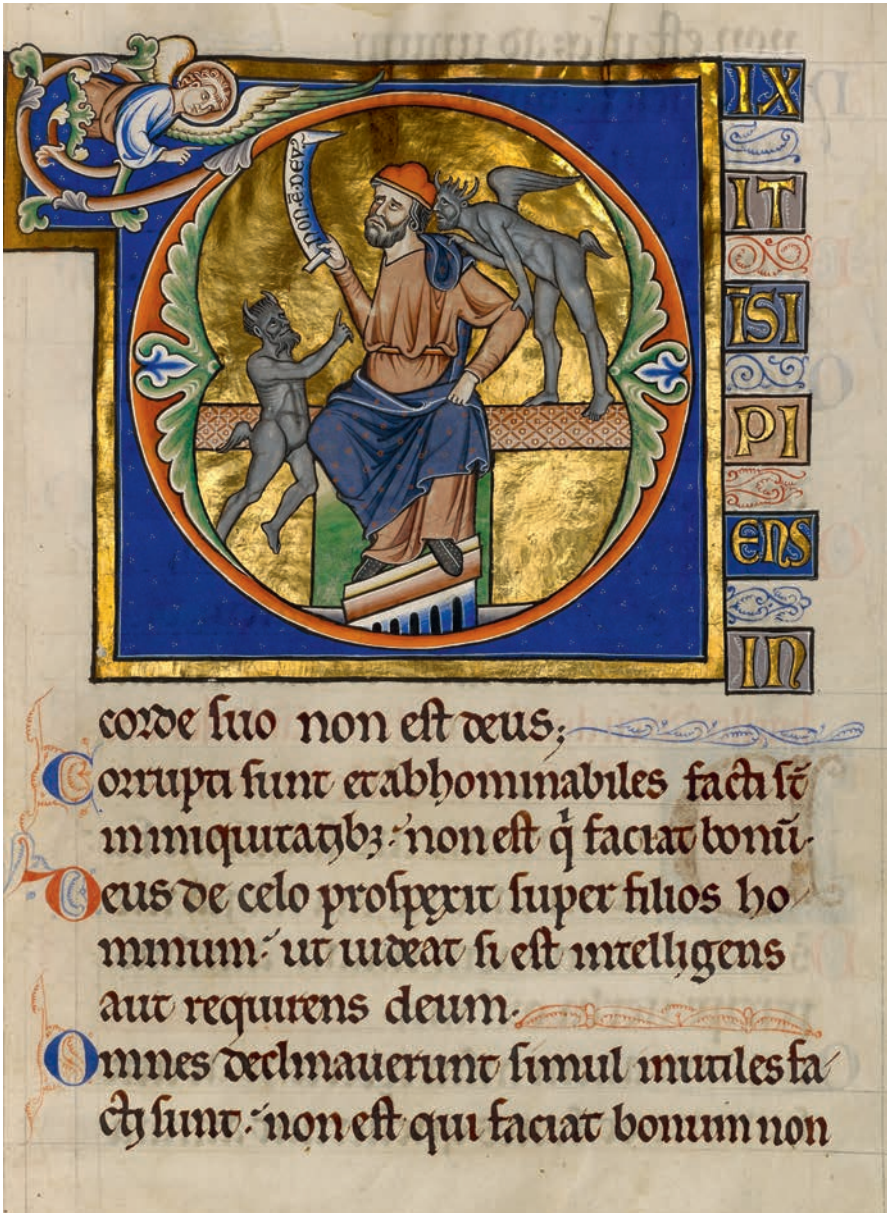 NON·Ē·DEVS
D
IX
IT
ĪSI
PI
ENS
IN
corde suo non est deus;
Corrupti sunt et abhominabiles facti st̄
in iniquitatibꝫ· non est qͥ faciat bonū·
Deus de celo prospexit super filios ho
minum· ut uideat si est intelligens
aut requirens deum·
Omnes declinauerunt simul inutiles fa
cti sunt· non est qui faciat bonum non